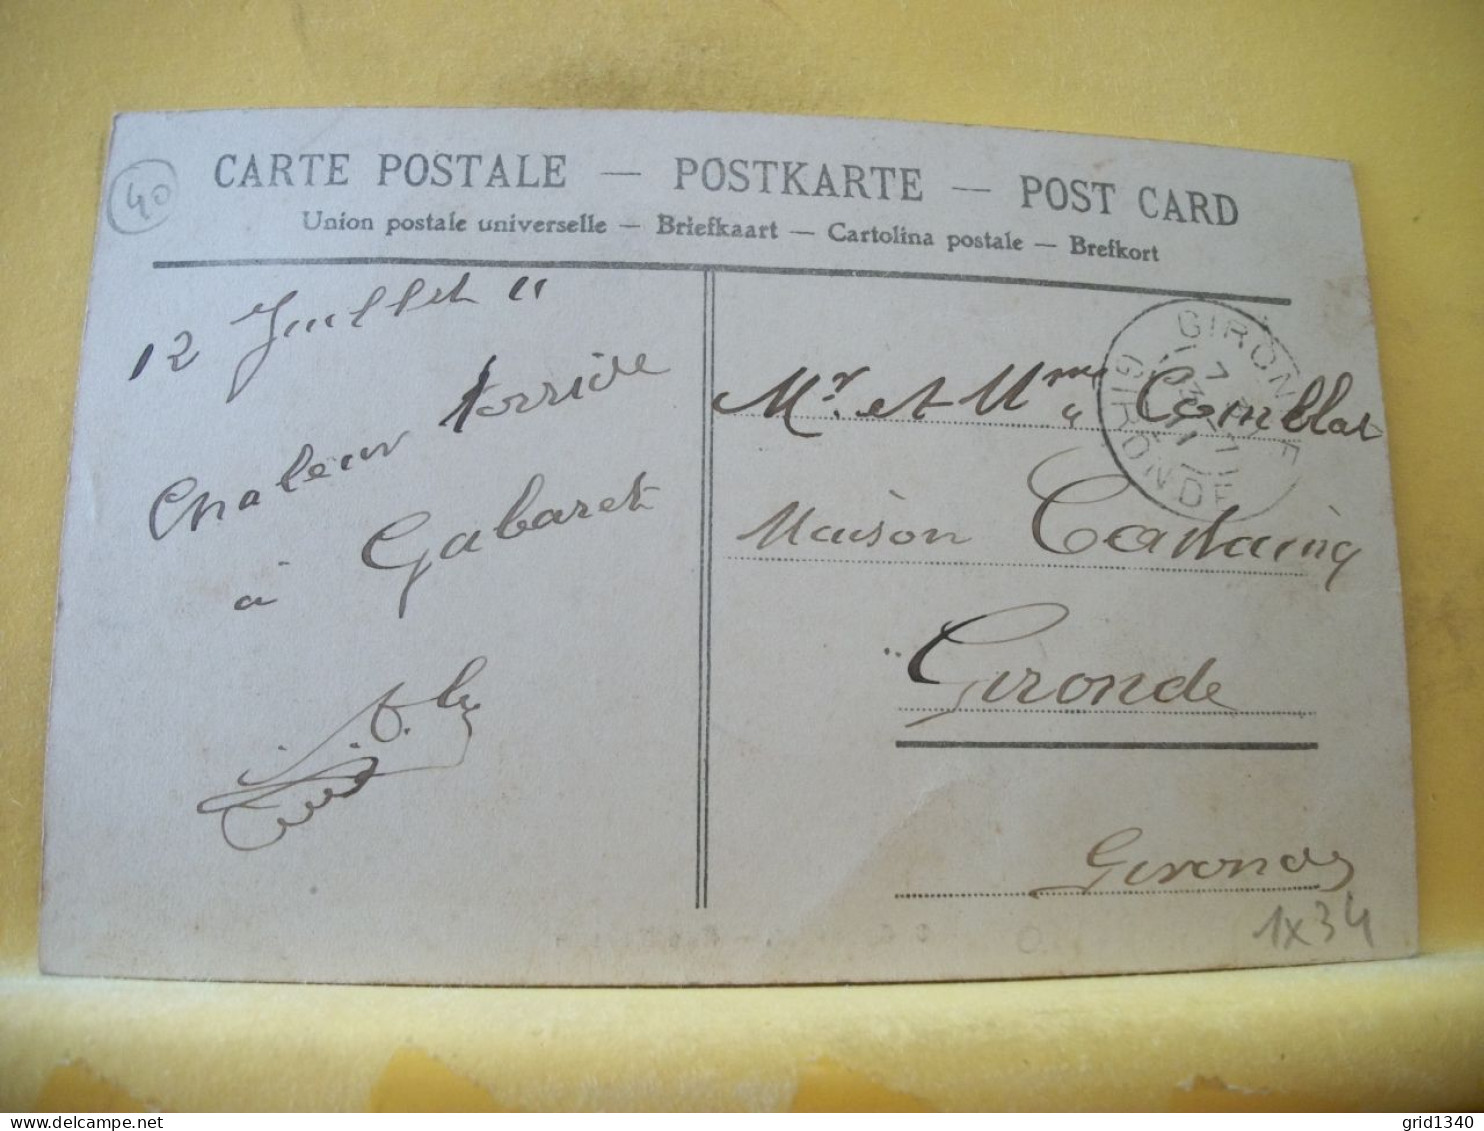 40
CARTE POSTALE — POSTKARTE — POST CARD
Union postale universelle — Briefkaart — Cartolina postale — Brefkort
12 Juillet 11
Chaleur torride
à Gabaret
GIRONDE
GIRONDE
Mr. et Mme Comblat
Maison
Gironde
Gironde
1x34
grid1340